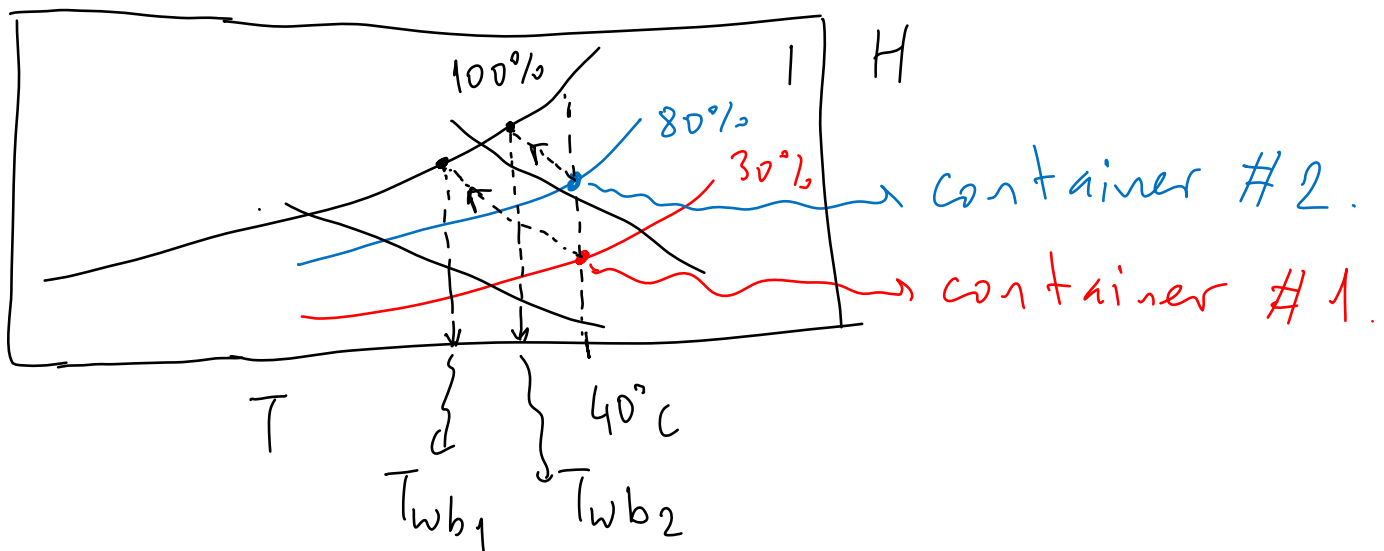 100%
H
80%
30%
container #2.
container #1.
T
40°C
Twb1
Twb2